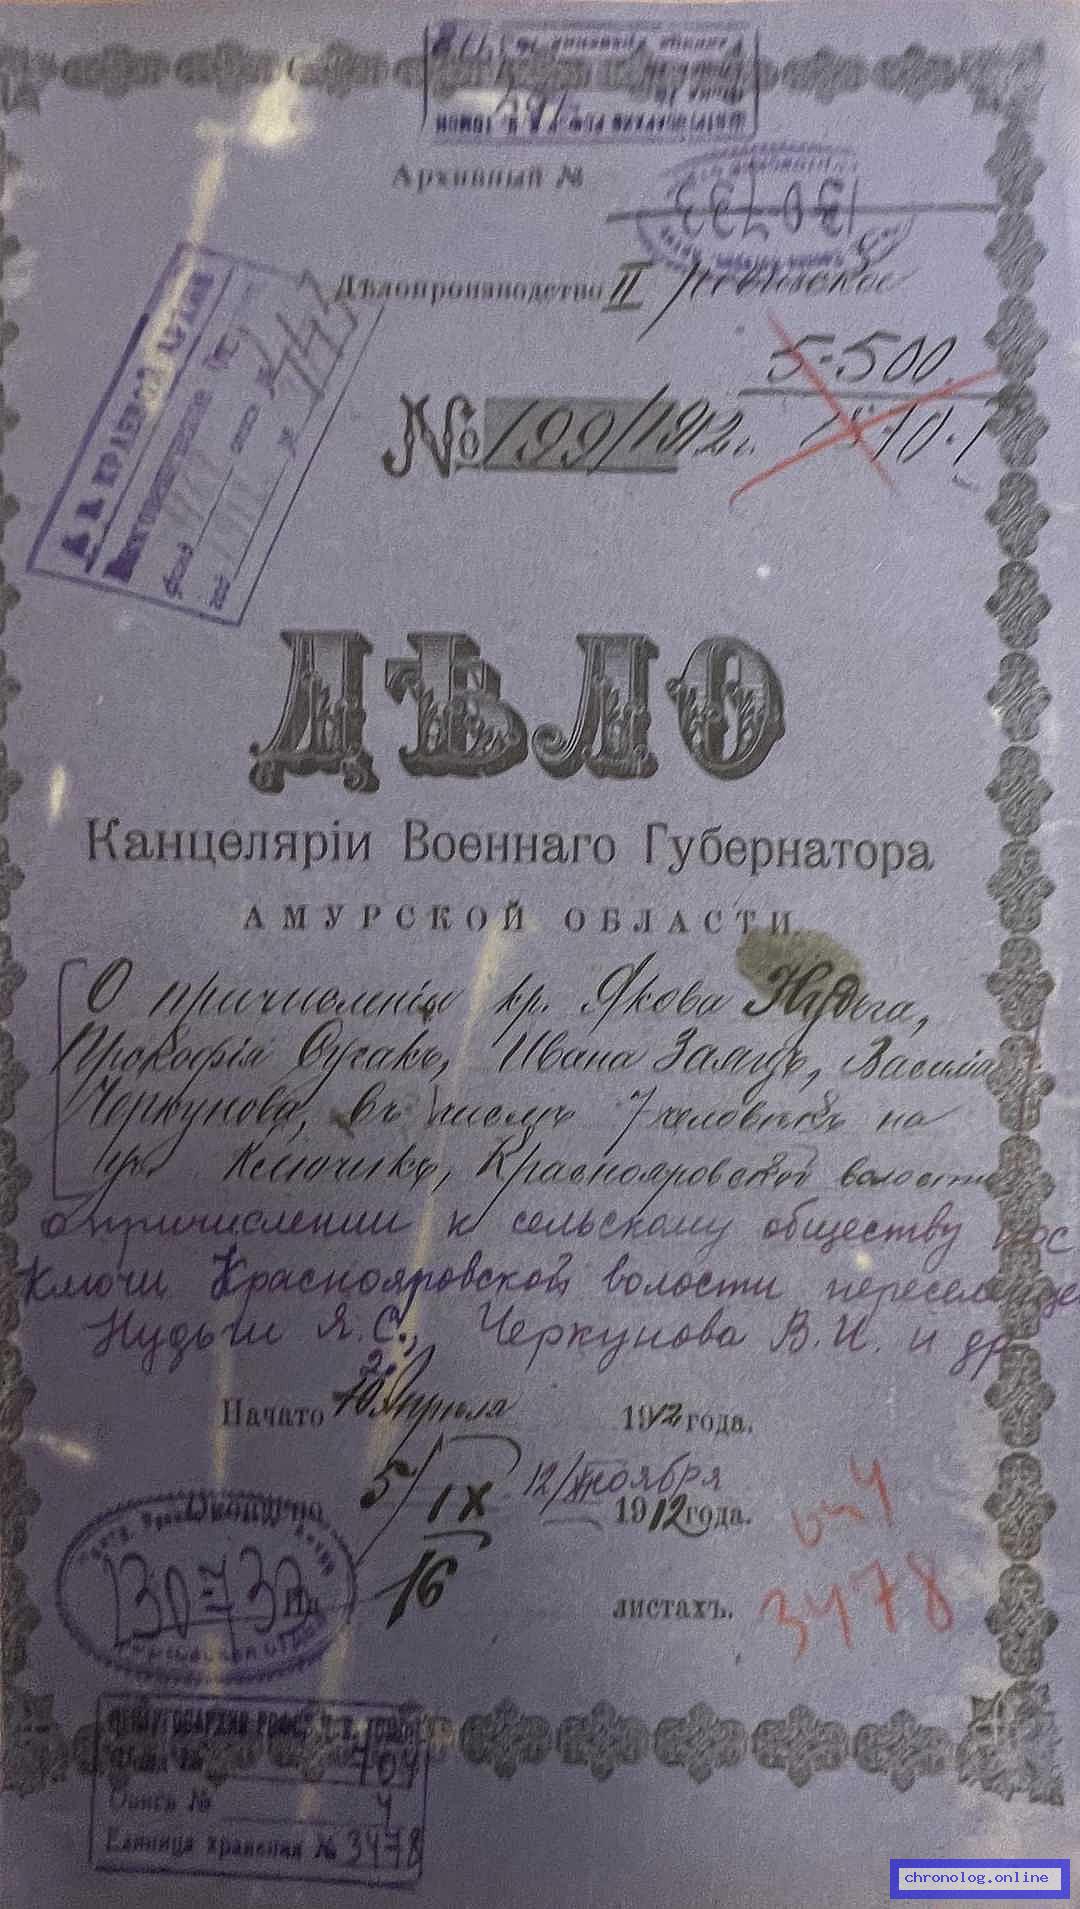 Архивный №
130-733
Дѣлопроизводство II
5-500
№ 199/1912 г.
ДѢЛО
Канцеляріи Военнаго Губернатора
АМУРСКОЙ ОБЛАСТИ.
О причисленіи кр. Якова Нудьга,
Прокофія Сугакъ, Ивана Заяцъ, Василія
Черкунова, въ числѣ 7 человѣкъ на
уч. Ключикъ, Краснояровской волости
о причислении к сельскому обществу пос.
Ключи Краснояровской волости переселенцев
Нудьги Я.С., Черкунова В.И. и др.
Начато Апрѣля 1912 года.
5/IX 12/ноября
Окончено 1912 года.
130-733
На 16 листахъ.
3478
ЦЕНТРГОСАРХИВ РСФСР Д.В. ТОМСК
Фонд № 704
Опись № 4
Единица хранения № 3478
chronolog.online